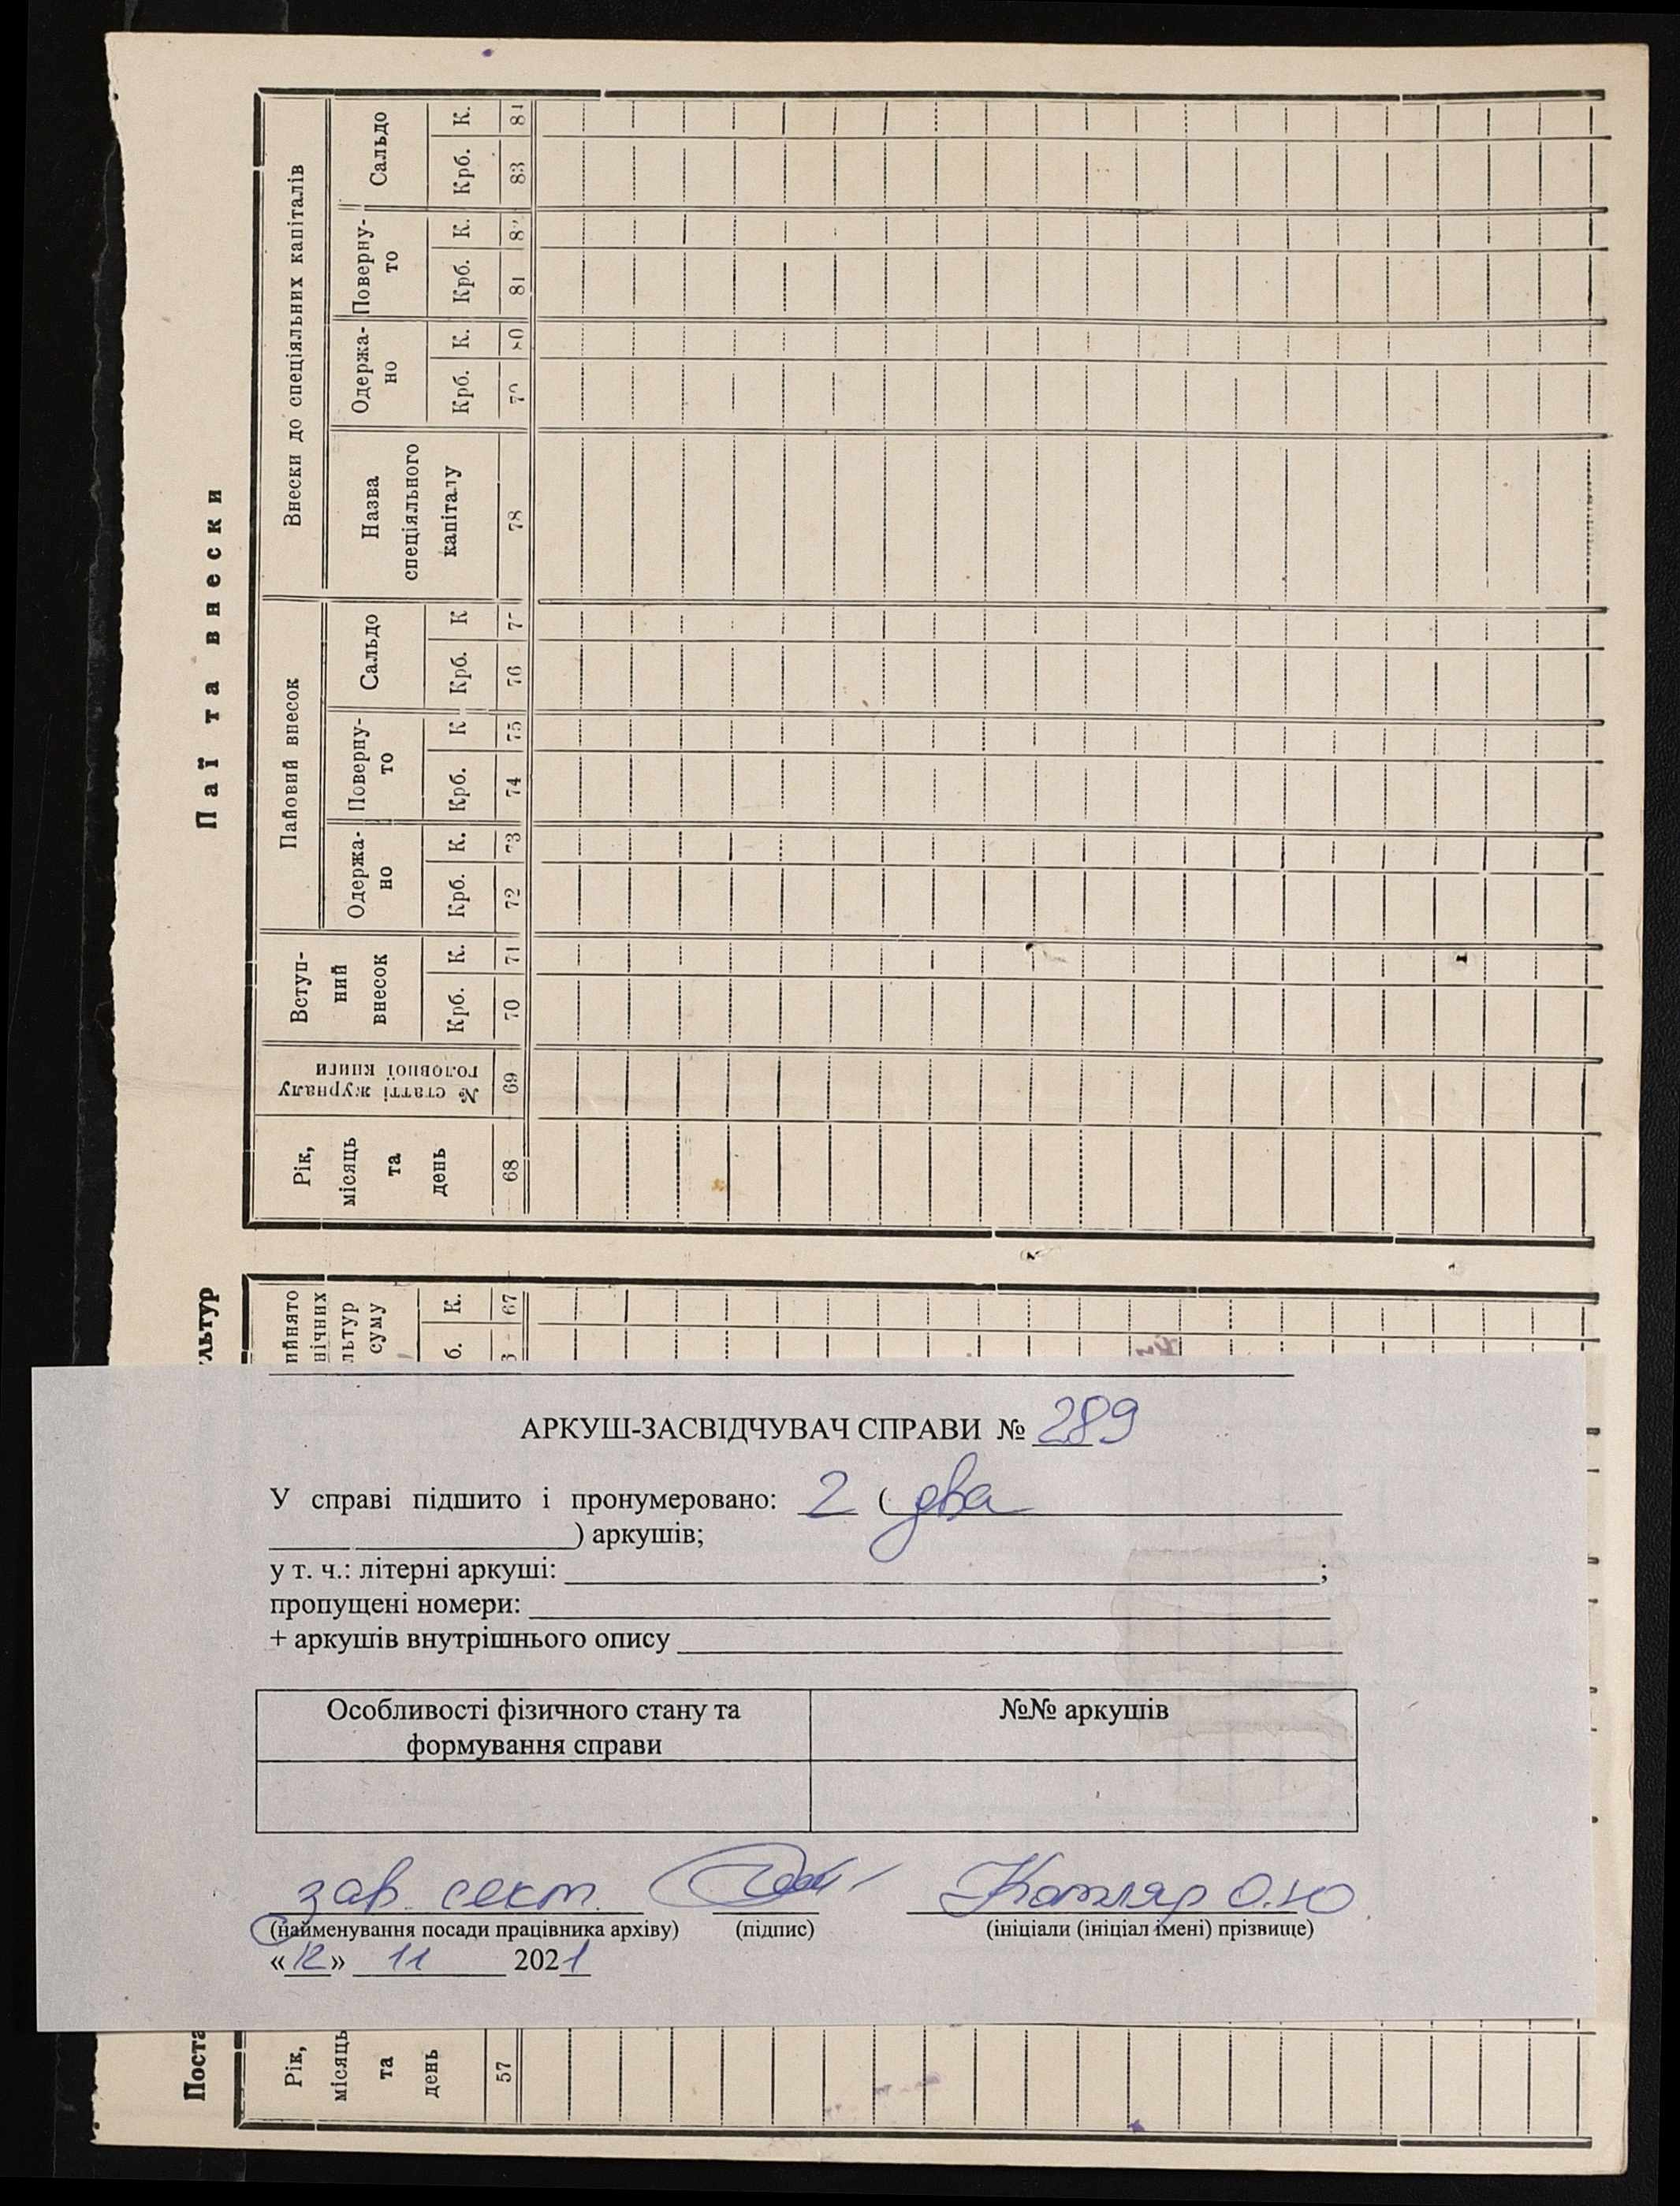 Паї та внески
Рік, місяць та день
№ статті журналу головної книги
Вступ-ний внесок
Крб. К.
Пайовий внесок
Одержа-но
Крб. К.
Поверну-то
Крб. К
Сальдо
Крб. К
Внески до спеціяльних капіталів
Назва спеціяльного капіталу
Одержа-но
Крб. К.
Поверну-то
Крб. К.
Сальдо
Крб. К.
68 69 70 71 72 73 74 75 76 77 78 79 80 81 82 83 84
льтур
ийнято
нічних
льтур
суму
б. К.
67
АРКУШ-ЗАСВІДЧУВАЧ СПРАВИ № 289
У справі підшито і пронумеровано: 2 ( два
) аркушів;
у т. ч.: літерні аркуші: ;
пропущені номери:
+ аркушів внутрішнього опису
Особливості фізичного стану та формування справи
№№ аркушів
зав. сект. Котляр О.Ю
(найменування посади працівника архіву) (підпис) (ініціали (ініціал імені) прізвище)
«12» 11 2021
Поста
Рік,
місяць
та
день
57